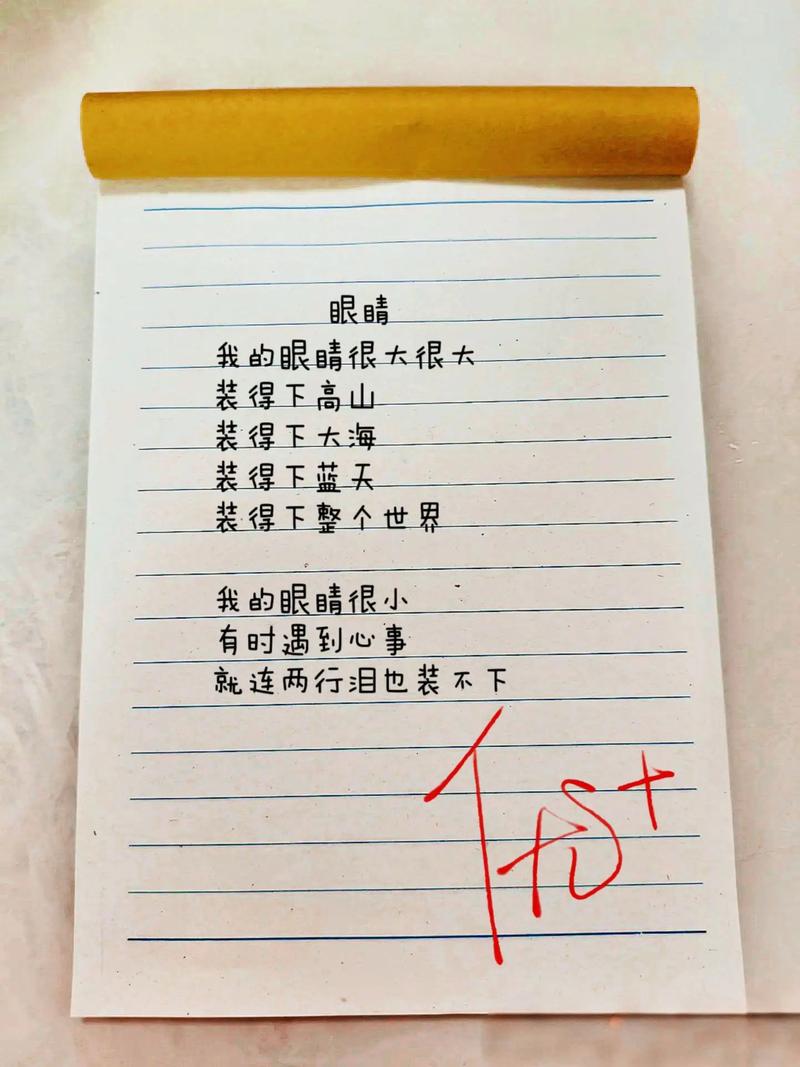 眼睛
我的眼睛很大很大
装得下高山
装得下大海
装得下蓝天
装得下整个世界
我的眼睛很小
有时遇到心事
就连两行泪也装不下
优+